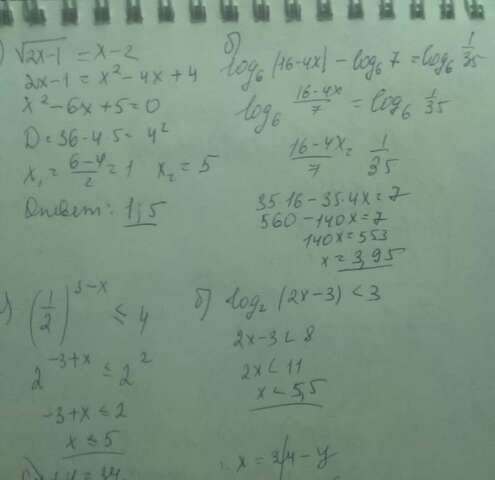 ) √2x-1 = x-2
2x-1 = x²-4x+4
x²-6x+5=0
D=36-4·5=4²
x₁ = (6-4)/2 = 1 x₂ = 5
Ответ: 1; 5
б)
log₆(16-4x) - log₆7 = log₆ 1/35
log₆ (16-4x)/7 = log₆ 1/35
(16-4x)/7 = 1/35
35·16-35·4x=7
560-140x=7
140x=553
x=3,95
) (1/2)^(3-x) ≤ 4
2^(-3+x) ≤ 2²
-3+x ≤ 2
x ≤ 5
б) log₂(2x-3) < 3
2x-3 < 8
2x < 11
x < 5,5
x = 34-y